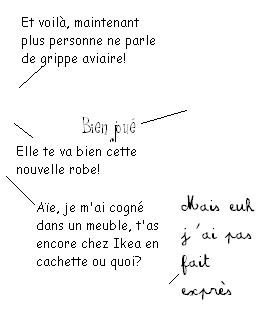 Et voilà, maintenant
plus personne ne parle
de grippe aviaire!
Bien joué
Elle te va bien cette
nouvelle robe!
Aïe, je m'ai cogné
dans un meuble, t'as
encore chez Ikea en
cachette ou quoi?
Mais euh
j'ai pas
fait
exprès